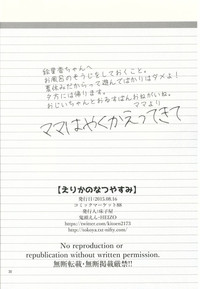 絵里香ちゃんへ
お風呂のそうじをしておくこと。
夏休みだからって遊んでばかりはダメよ!
夕方には帰ります。
おじいちゃんとおるすばんおねがいね。
ママより
ママはやくかえってきて
【えりかのなつやすみ】
発行日/2015.08.16
コミックマーケット88
https://twitter.com/kizuen2173
No reproduction or
republication without written permission.
無断転載・無断掲載厳禁!!